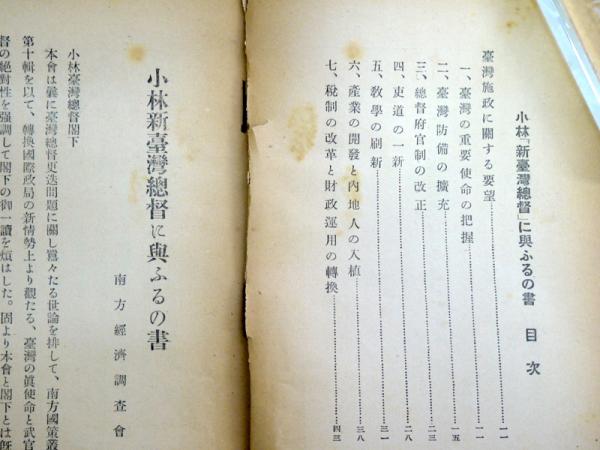 小林「新臺灣總督」に與ふるの書 目次
臺灣施政に關する要望……一一
一、臺灣の重要使命の把握……一一
二、臺灣防備の擴充……一五
三、總督府官制の改正……二三
四、吏道の一新……二八
五、教學の刷新……三一
六、產業の開發と內地人の入植……三八
七、稅制の改革と財政運用の轉換……四三
小林新臺灣總督に與ふるの書
南方經濟調查會
小林臺灣總督閣下
本會は曩に臺灣總督更迭問題に關し囂々たる世論を排して、南方國策叢
第十輯を以て、轉換國際政局の新情勢上より觀たる、臺灣の眞使命と武官
督の絕對性を强調して閣下の御一讀を煩はした。固より本會と閣下とは旣